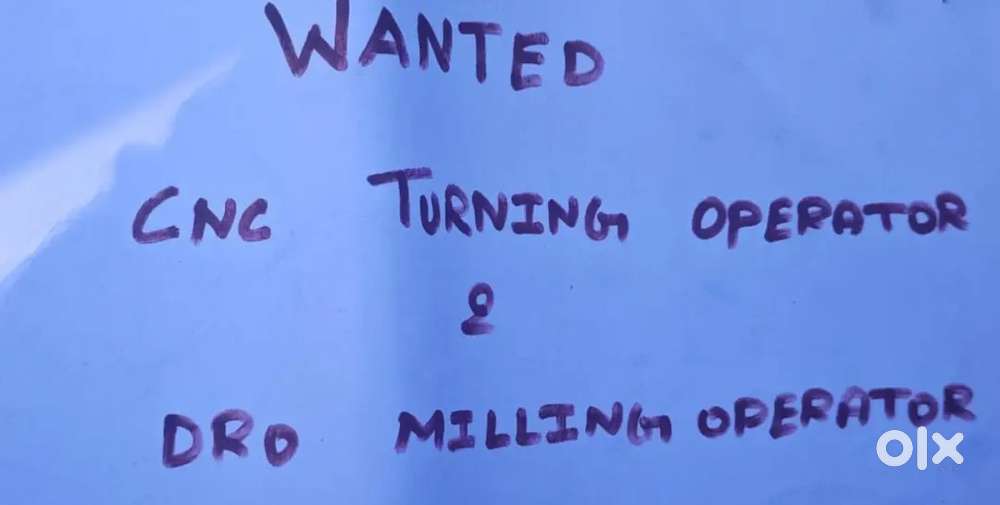 WANTED
CNC TURNING OPERATOR
&
DRO MILLING OPERATOR
olx